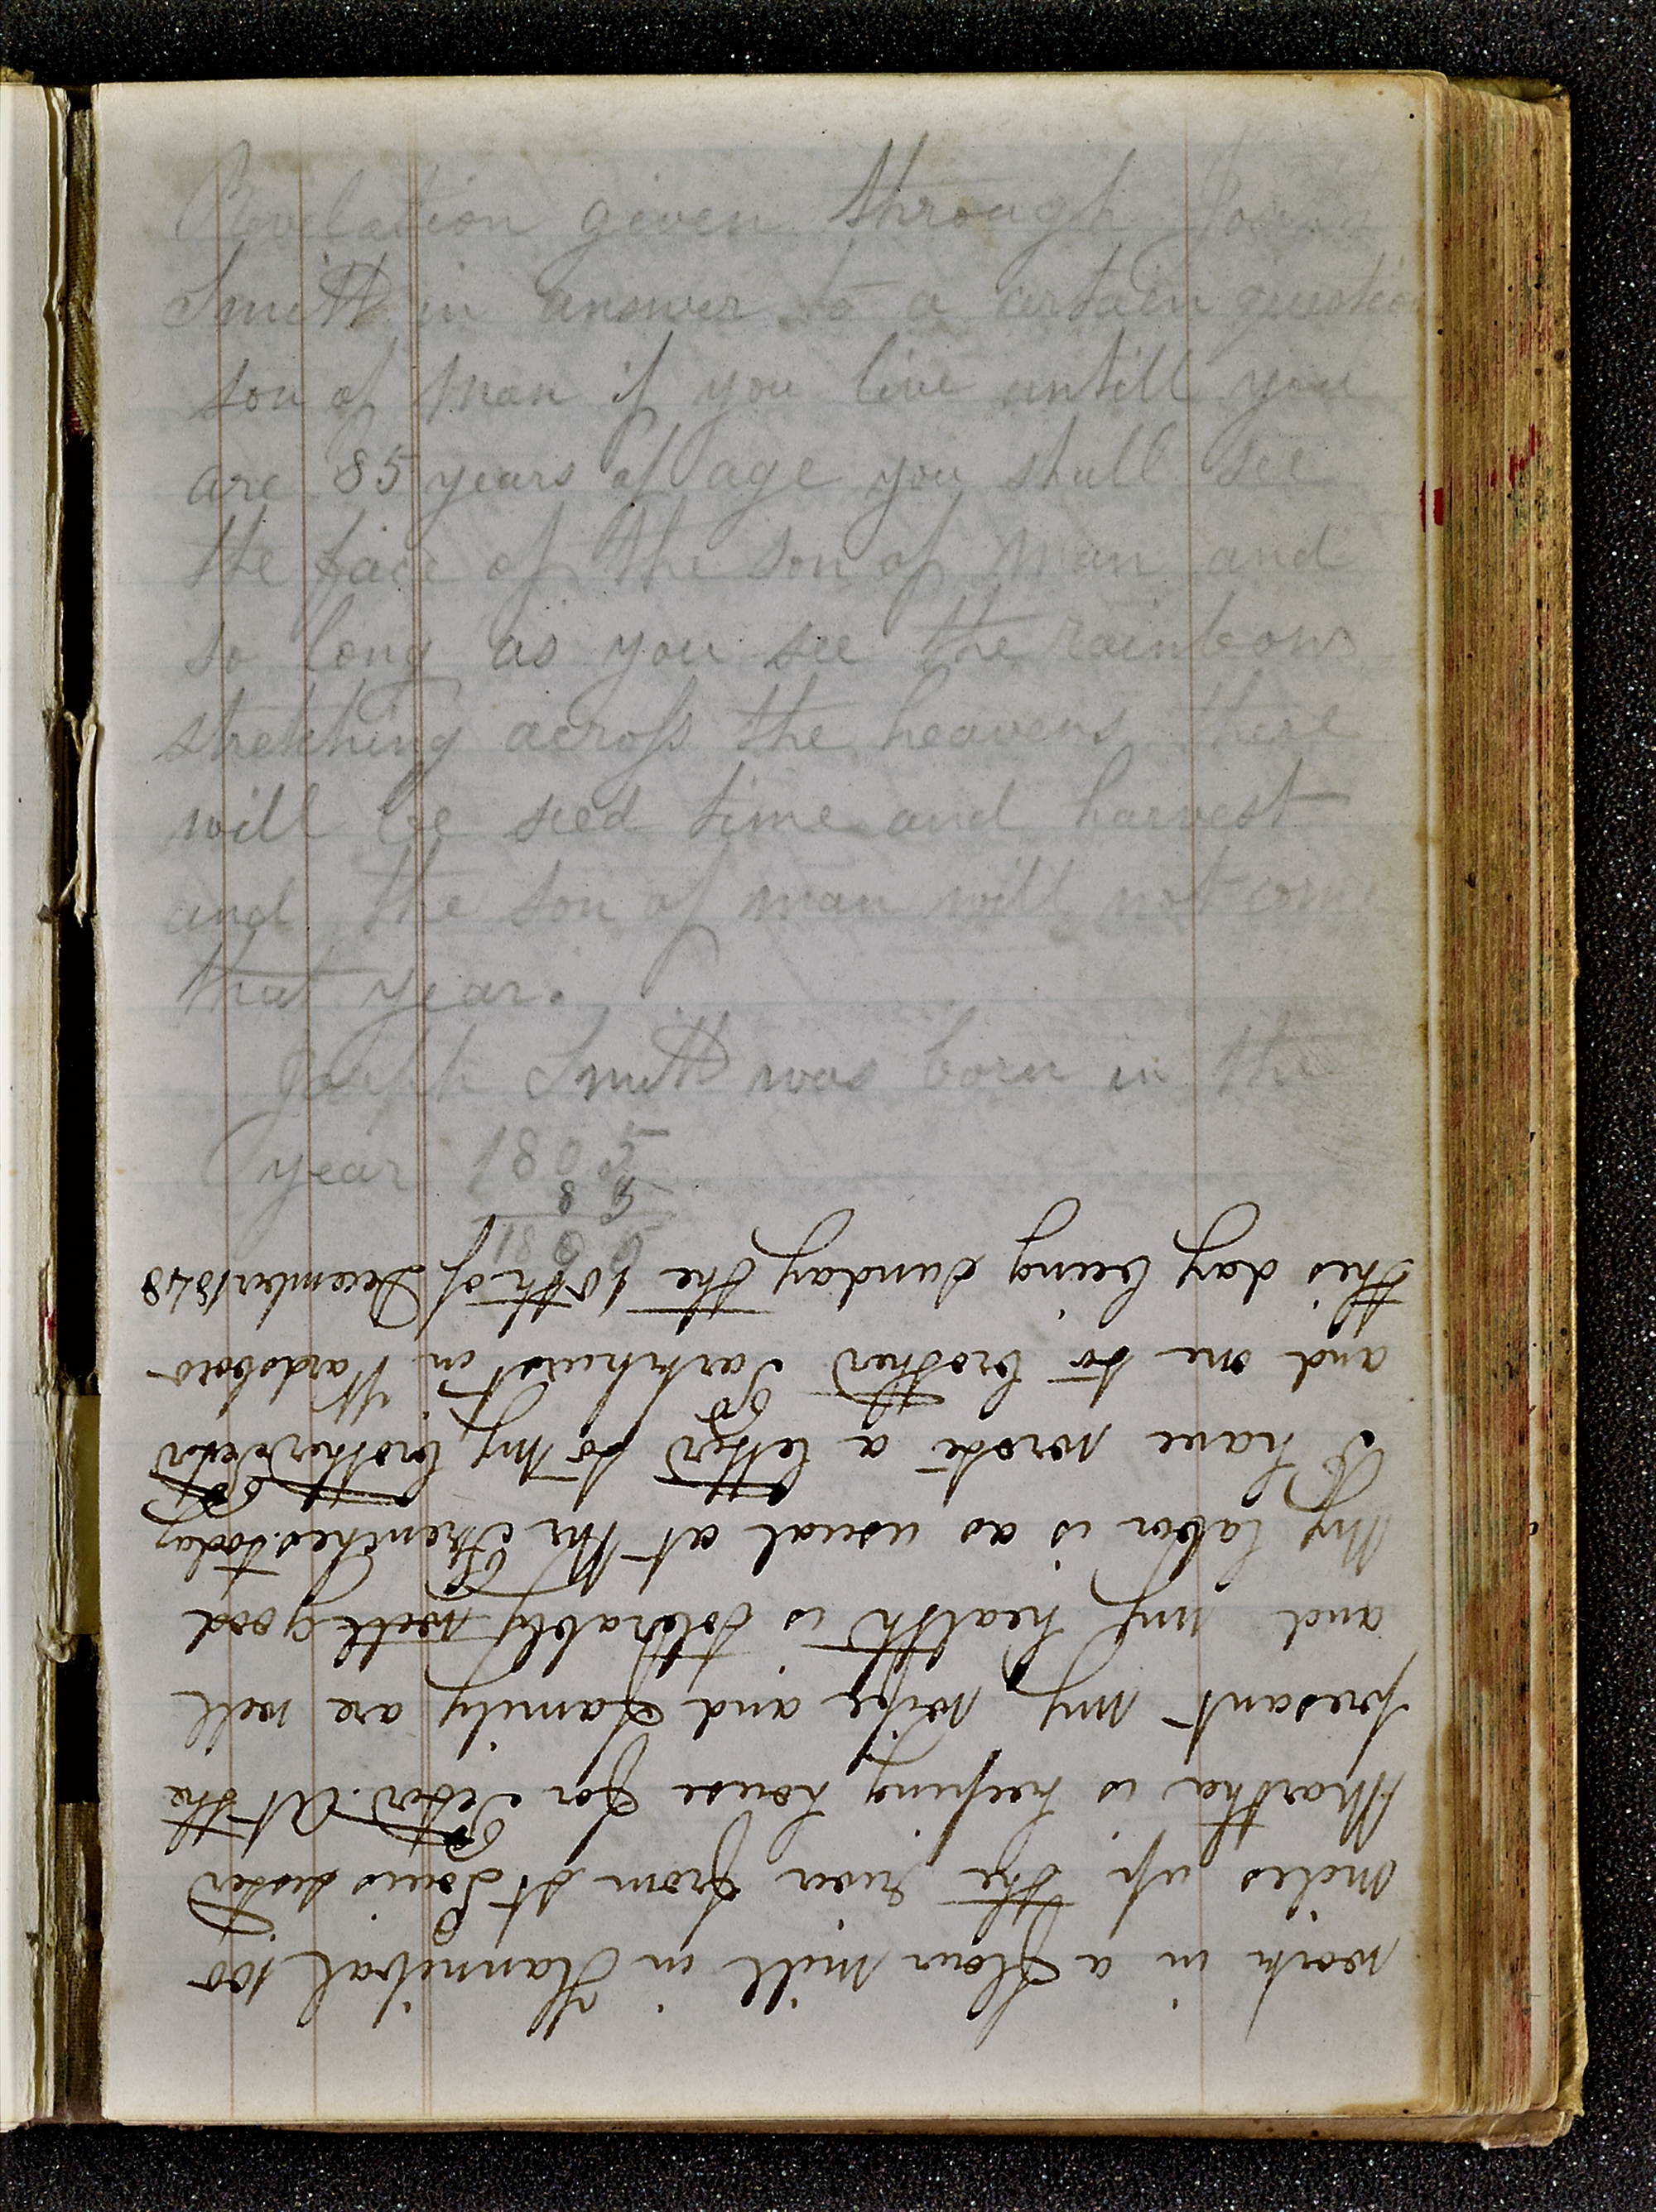 Revelation given through Joseph
Smith in answer to a certain question
son of Man if you live untill you
are 85 years of age you shall see
the face of the son of Man and
so long as you see the rainbow
stretching across the heavens there
will be seed time and harvest
and the son of man will not come
that year.
Joseph Smith was born in the
year 1805
85
18
work in a flour mill in Hannibal 100
miles up the river from St Louis sister
Martha is keeping house for Peter. At the
presant my wife and family are well
and my health is tolerably well good
My labor is as usual at Mr Frenches. today
I have wrote a letter to my brother Peter
and one to brother in Wardsboro
this day being sunday the 10th of December 1848